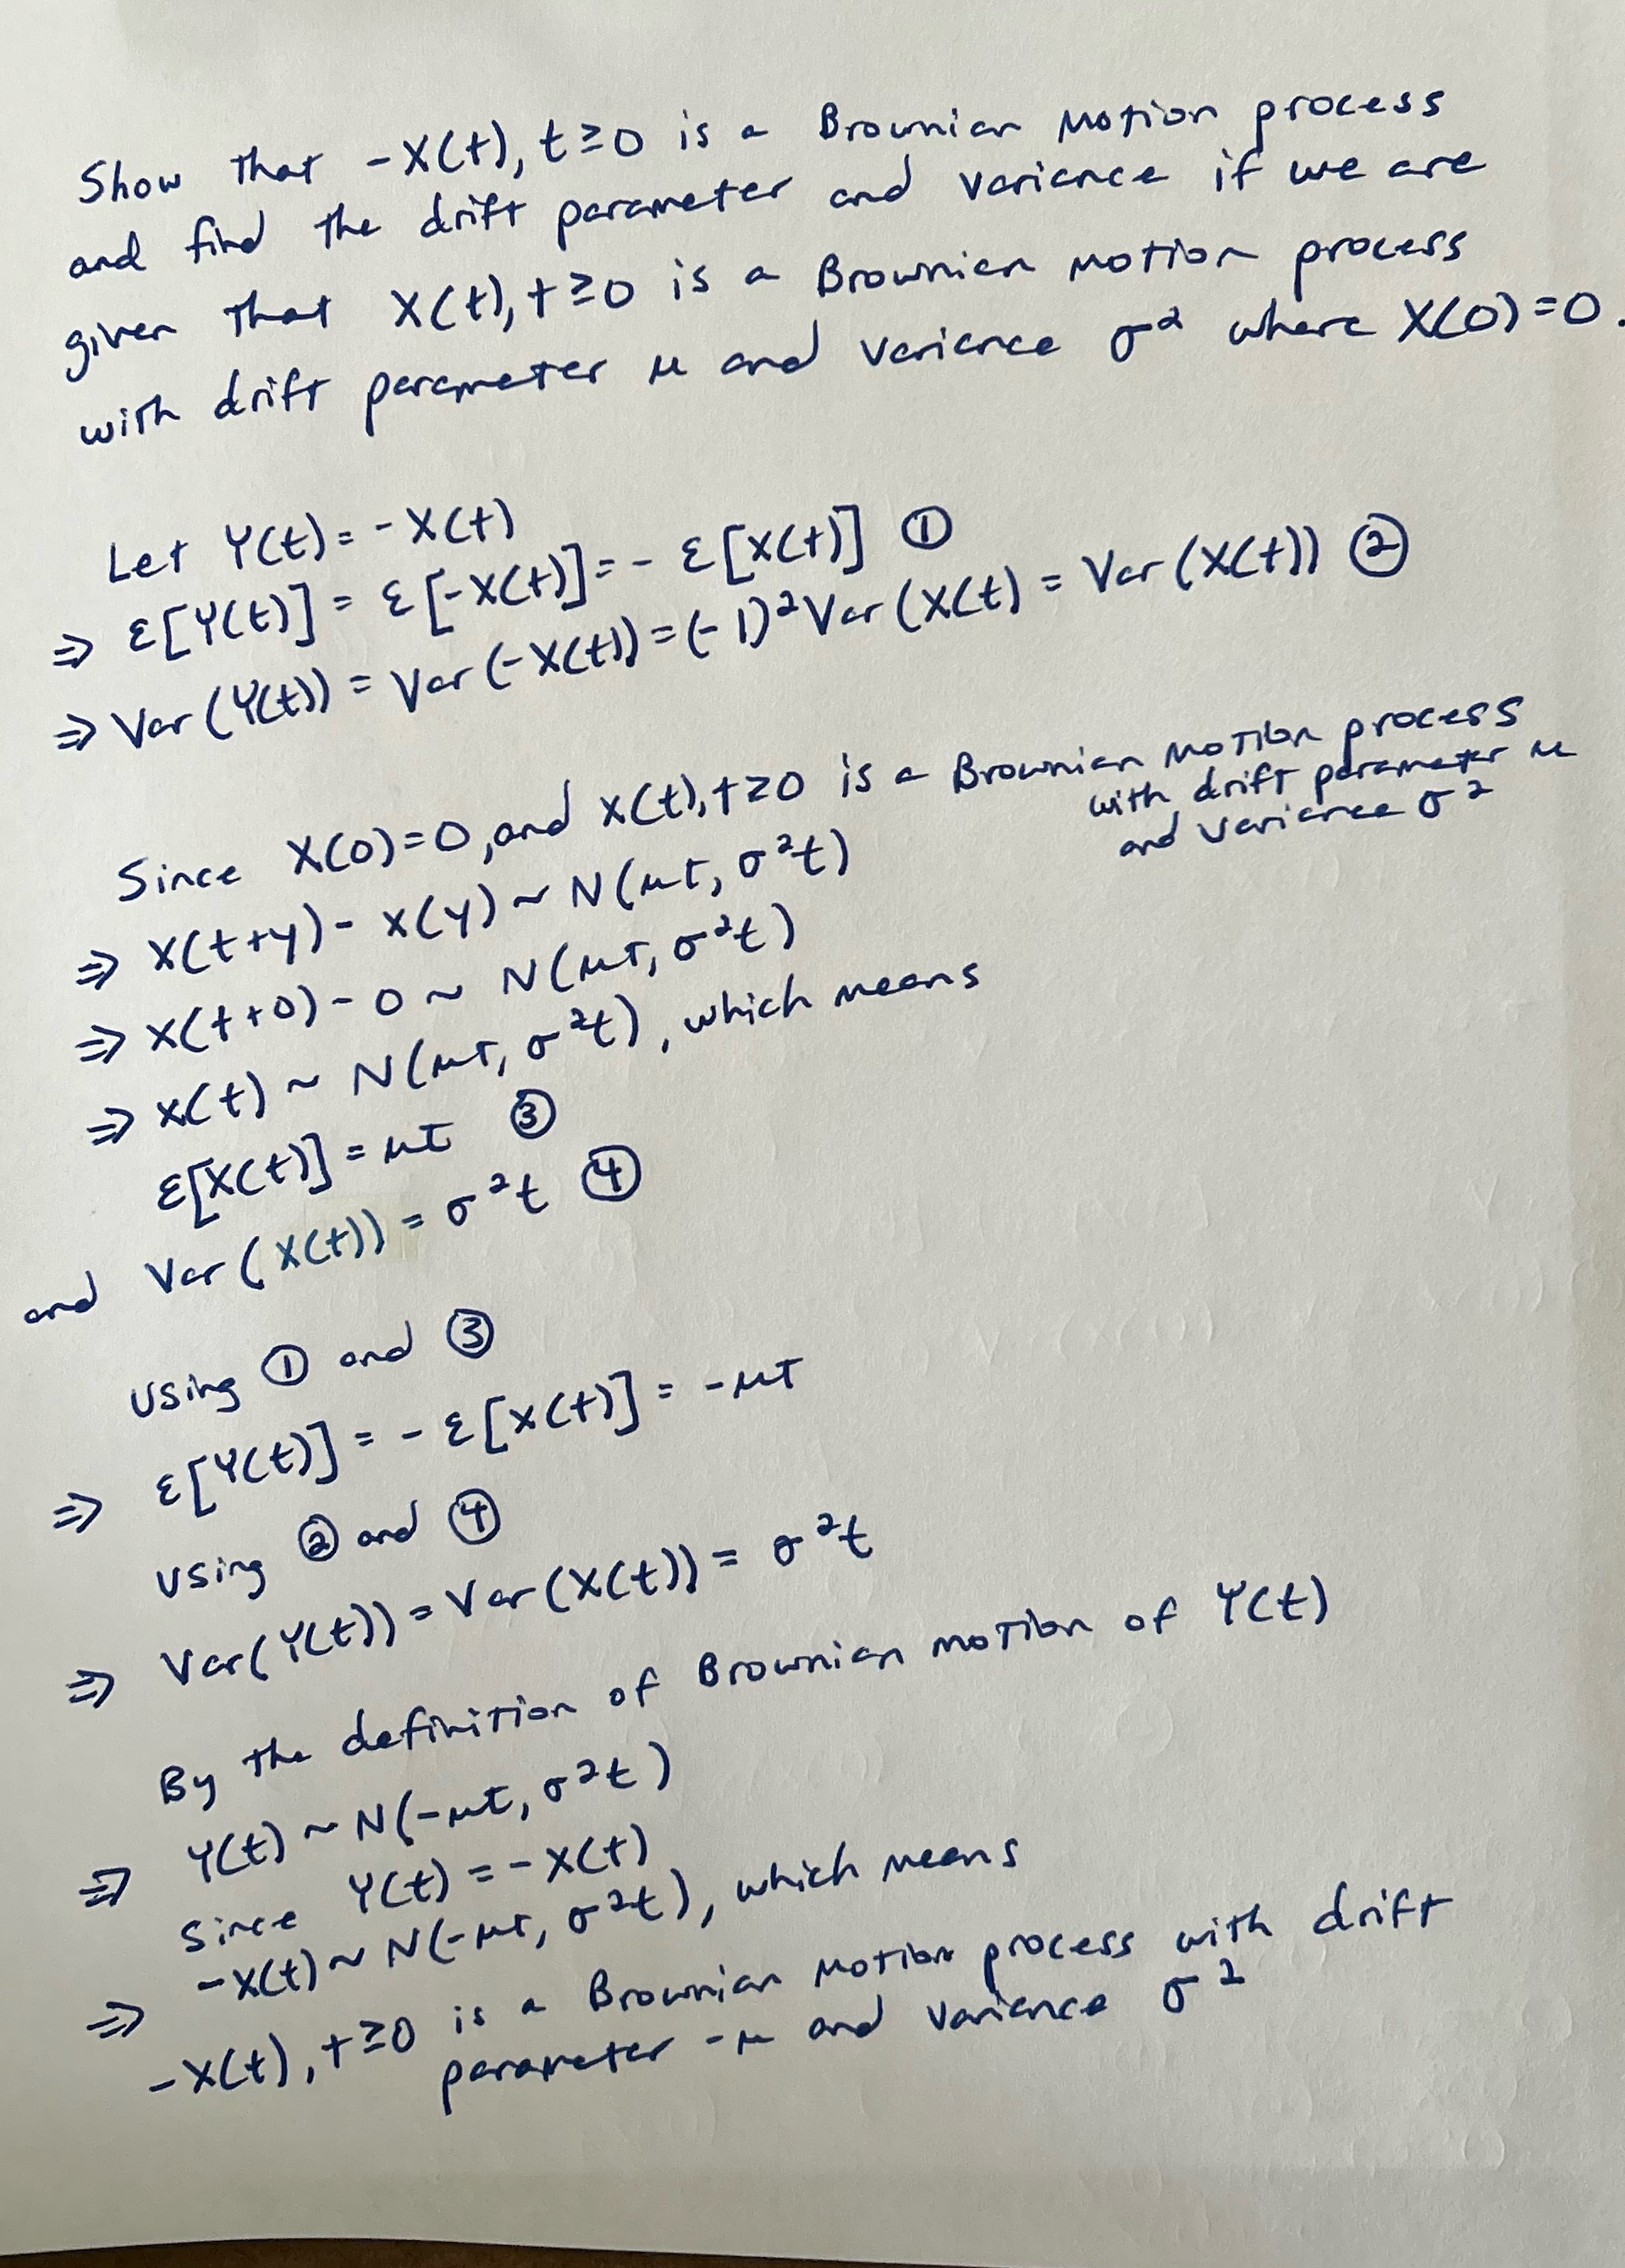 Show that -X(t), t≥0 is a Brownian Motion process
and find the drift parameter and variance if we are
given that X(t), t≥0 is a Brownian Motion process
with drift parameter μ and variance σ² where X(0)=0.
Let Y(t) = -X(t)
⇒ E[Y(t)] = E[-X(t)] = - E[X(t)] ①
⇒ Var(Y(t)) = Var(-X(t)) = (-1)² Var(X(t) = Var(X(t)) ②
Since X(0)=0, and X(t), t≥0 is a Brownian Motion process
with drift parameter μ
and variance σ²
⇒ X(t+y) - X(y) ~ N(μt, σ²t)
⇒ X(t+0) - 0 ~ N(μt, σ²t)
⇒ X(t) ~ N(μt, σ²t), which means
E[X(t)] = μt ③
and Var(X(t)) = σ²t ④
Using ① and ③
⇒ E[Y(t)] = - E[X(t)] = -μt
Using ② and ④
⇒ Var(Y(t)) = Var(X(t)) = σ²t
By the definition of Brownian motion of Y(t)
⇒ Y(t) ~ N(-μt, σ²t)
Since Y(t) = -X(t)
⇒ -X(t) ~ N(-μt, σ²t), which means
-X(t), t≥0 is a Brownian Motion process with drift
parameter -μ and variance σ²